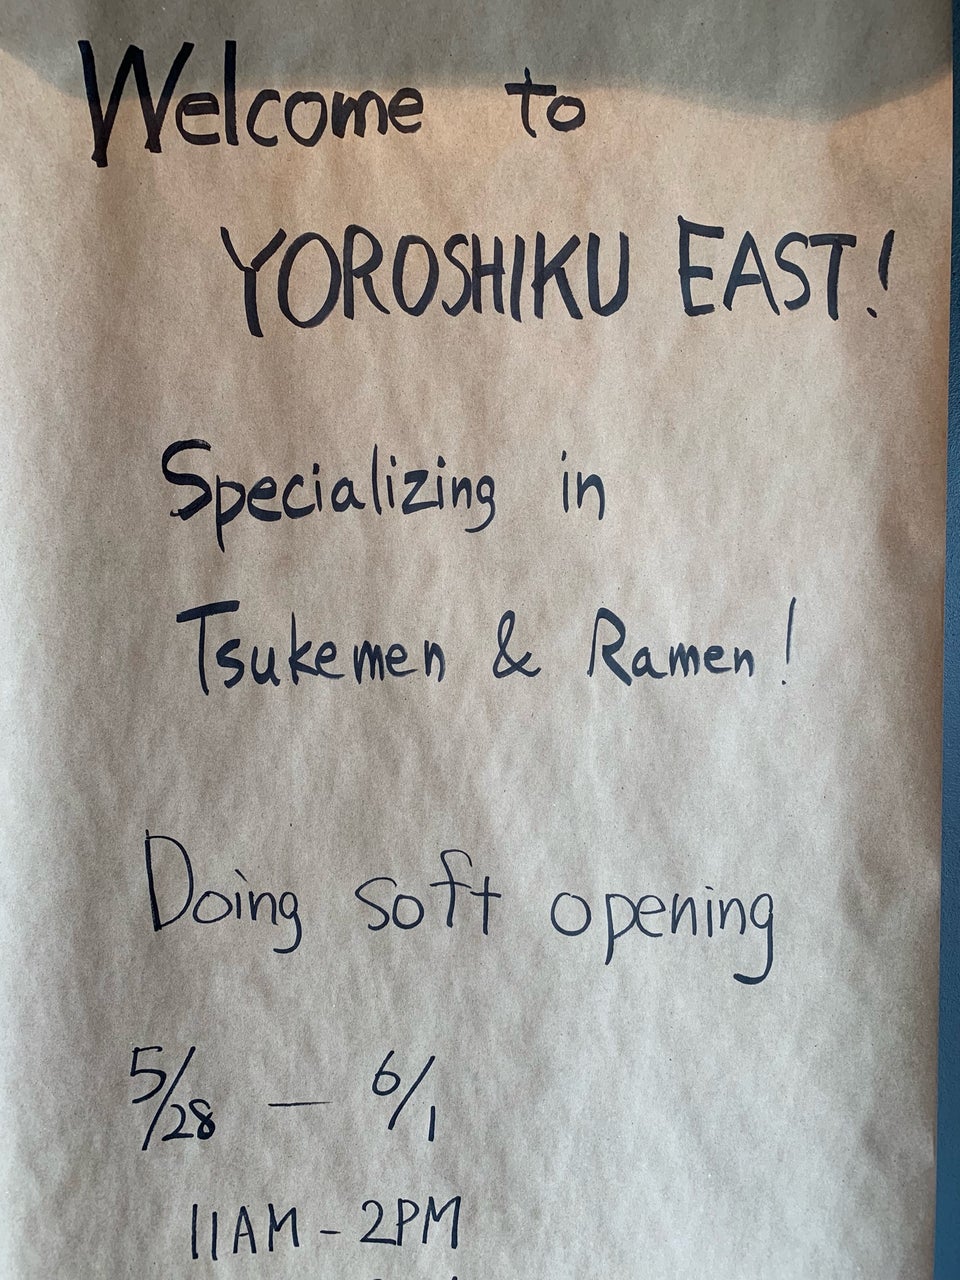 Welcome to
YOROSHIKU EAST!
Specializing in
Tsukemen & Ramen!
Doing soft opening
5/28 — 6/1
11AM - 2PM